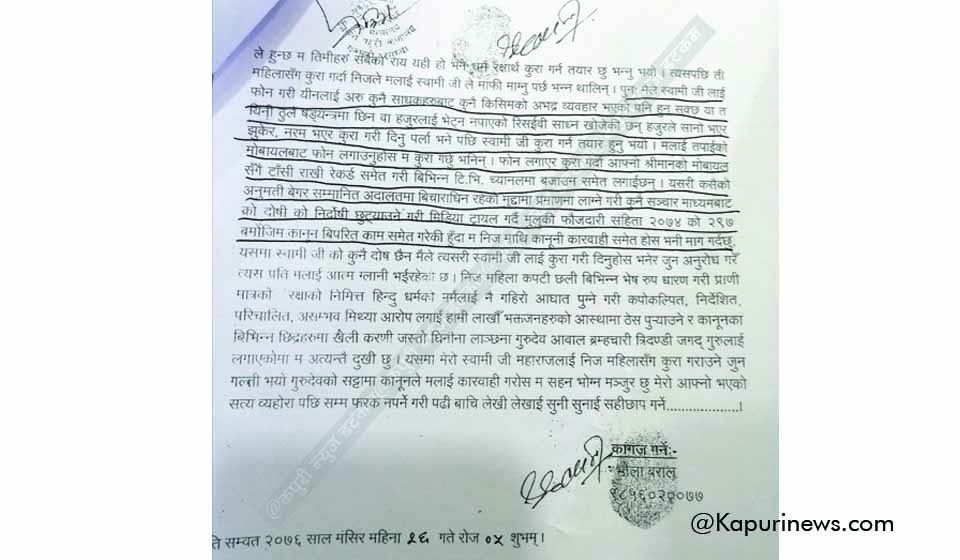 ले हुन्छ म तिमीहरु सबैको राय यही हो भने धर्म रक्षार्थ कुरा गर्न तयार छु भन्नु भयो । त्यसपछि ती
महिलासँग कुरा गर्दा निजले मलाई स्वामी जी ले माफी माग्नु पर्छ भन्न थालिन् । पुनः मैले स्वामी जी लाई
फोन गरी यीनलाई अरु कुनै साधकहरुबाट कुनै किसिमको अभद्र व्यवहार भएको पनि हुन सक्छ या त
यिनी ठुलै षड्यन्त्रमा छिन वा हजुरलाई भेट्न नपाएको रिसईवी साध्न खोजेकी छन् हजुरले सानो भएर
झुकेर, नरम भएर कुरा गरी दिनु पर्ला भने पछि स्वामी जी कुरा गर्न तयार हुनु भयो । मलाई तपाईको
मोबायलबाट फोन लगाउनुहोस म कुरा गर्छु भनिन् । फोन लगाएर कुरा गर्दा आफ्नो श्रीमानको मोबायल
सँगै टाँसी राखी रेकर्ड समेत गरी बिभिन्न टि.भि. च्यानलमा बजाउन समेत लगाईछन् । यसरी कसैको
अनुमती बेगर सम्मानित अदालतमा बिचाराधिन रहको मुद्दामा प्रमाणमा लाग्ने गरी कुनै सञ्चार माध्यमबाट
को दोषी को निर्दोषी छुट्याउने गरी मिडिया ट्रायल गर्दै मुलुकी फौजदारी संहिता २०७४ को २९७
बमोजिम कानून बिपरित काम समेत गरेकी हुँदा म निज माथि कानूनी कारवाही समेत होस भनी माग गर्दछु
यसमा स्वामी जी को कुनै दोष छैन मैले त्यसरी स्वामी जी लाई कुरा गरी दिनुहोस भनेर जुन अनुरोध गरें
त्यस प्रति मलाई आत्म ग्लानी भईरहेको छ । निज महिला कपटी छली बिभिन्न भेष रुप धारण गरी प्राणी
मात्रको रक्षाको निमित्त हिन्दु धर्मको नर्मलाई नै गहिरो आघात पुग्ने गरी कपोकल्पित, निर्देशित,
परिचालित, असम्भव मिथ्या आरोप लगाई हामी लाखौँ भक्तजनहरुको आस्थामा ठेस पुऱ्याउने र कानूनका
बिभिन्न छिद्रहरुमा खैली करणी जस्तो घिनौना लाञ्छना गुरुदेव आवाल ब्रम्हचारी त्रिदण्डी जगद् गुरुलाई
लगाएकोमा म अत्यन्तै दुखी छु । यसमा मेरो स्वामी जी महाराजलाई निज महिलासँग कुरा गराउने जुन
गल्ती भयो गुरुदेवको सट्टामा कानूनले मलाई कारवाही गरोस म सहन भोग्न मञ्जुर छु मेरो आफ्नो भएको
सत्य व्यहोरा पछि सम्म फरक नपर्ने गरी पढी बाचि लेखी लेखाई सुनी सुनाई सहीछाप गर्ने...................।
कागज गर्नेः-
भोला बराल
९८५६०२०७७
@Kapurinews.com
ति सम्वत २०७६ साल मंसिर महिना २६ गते रोज ०५ शुभम् ।